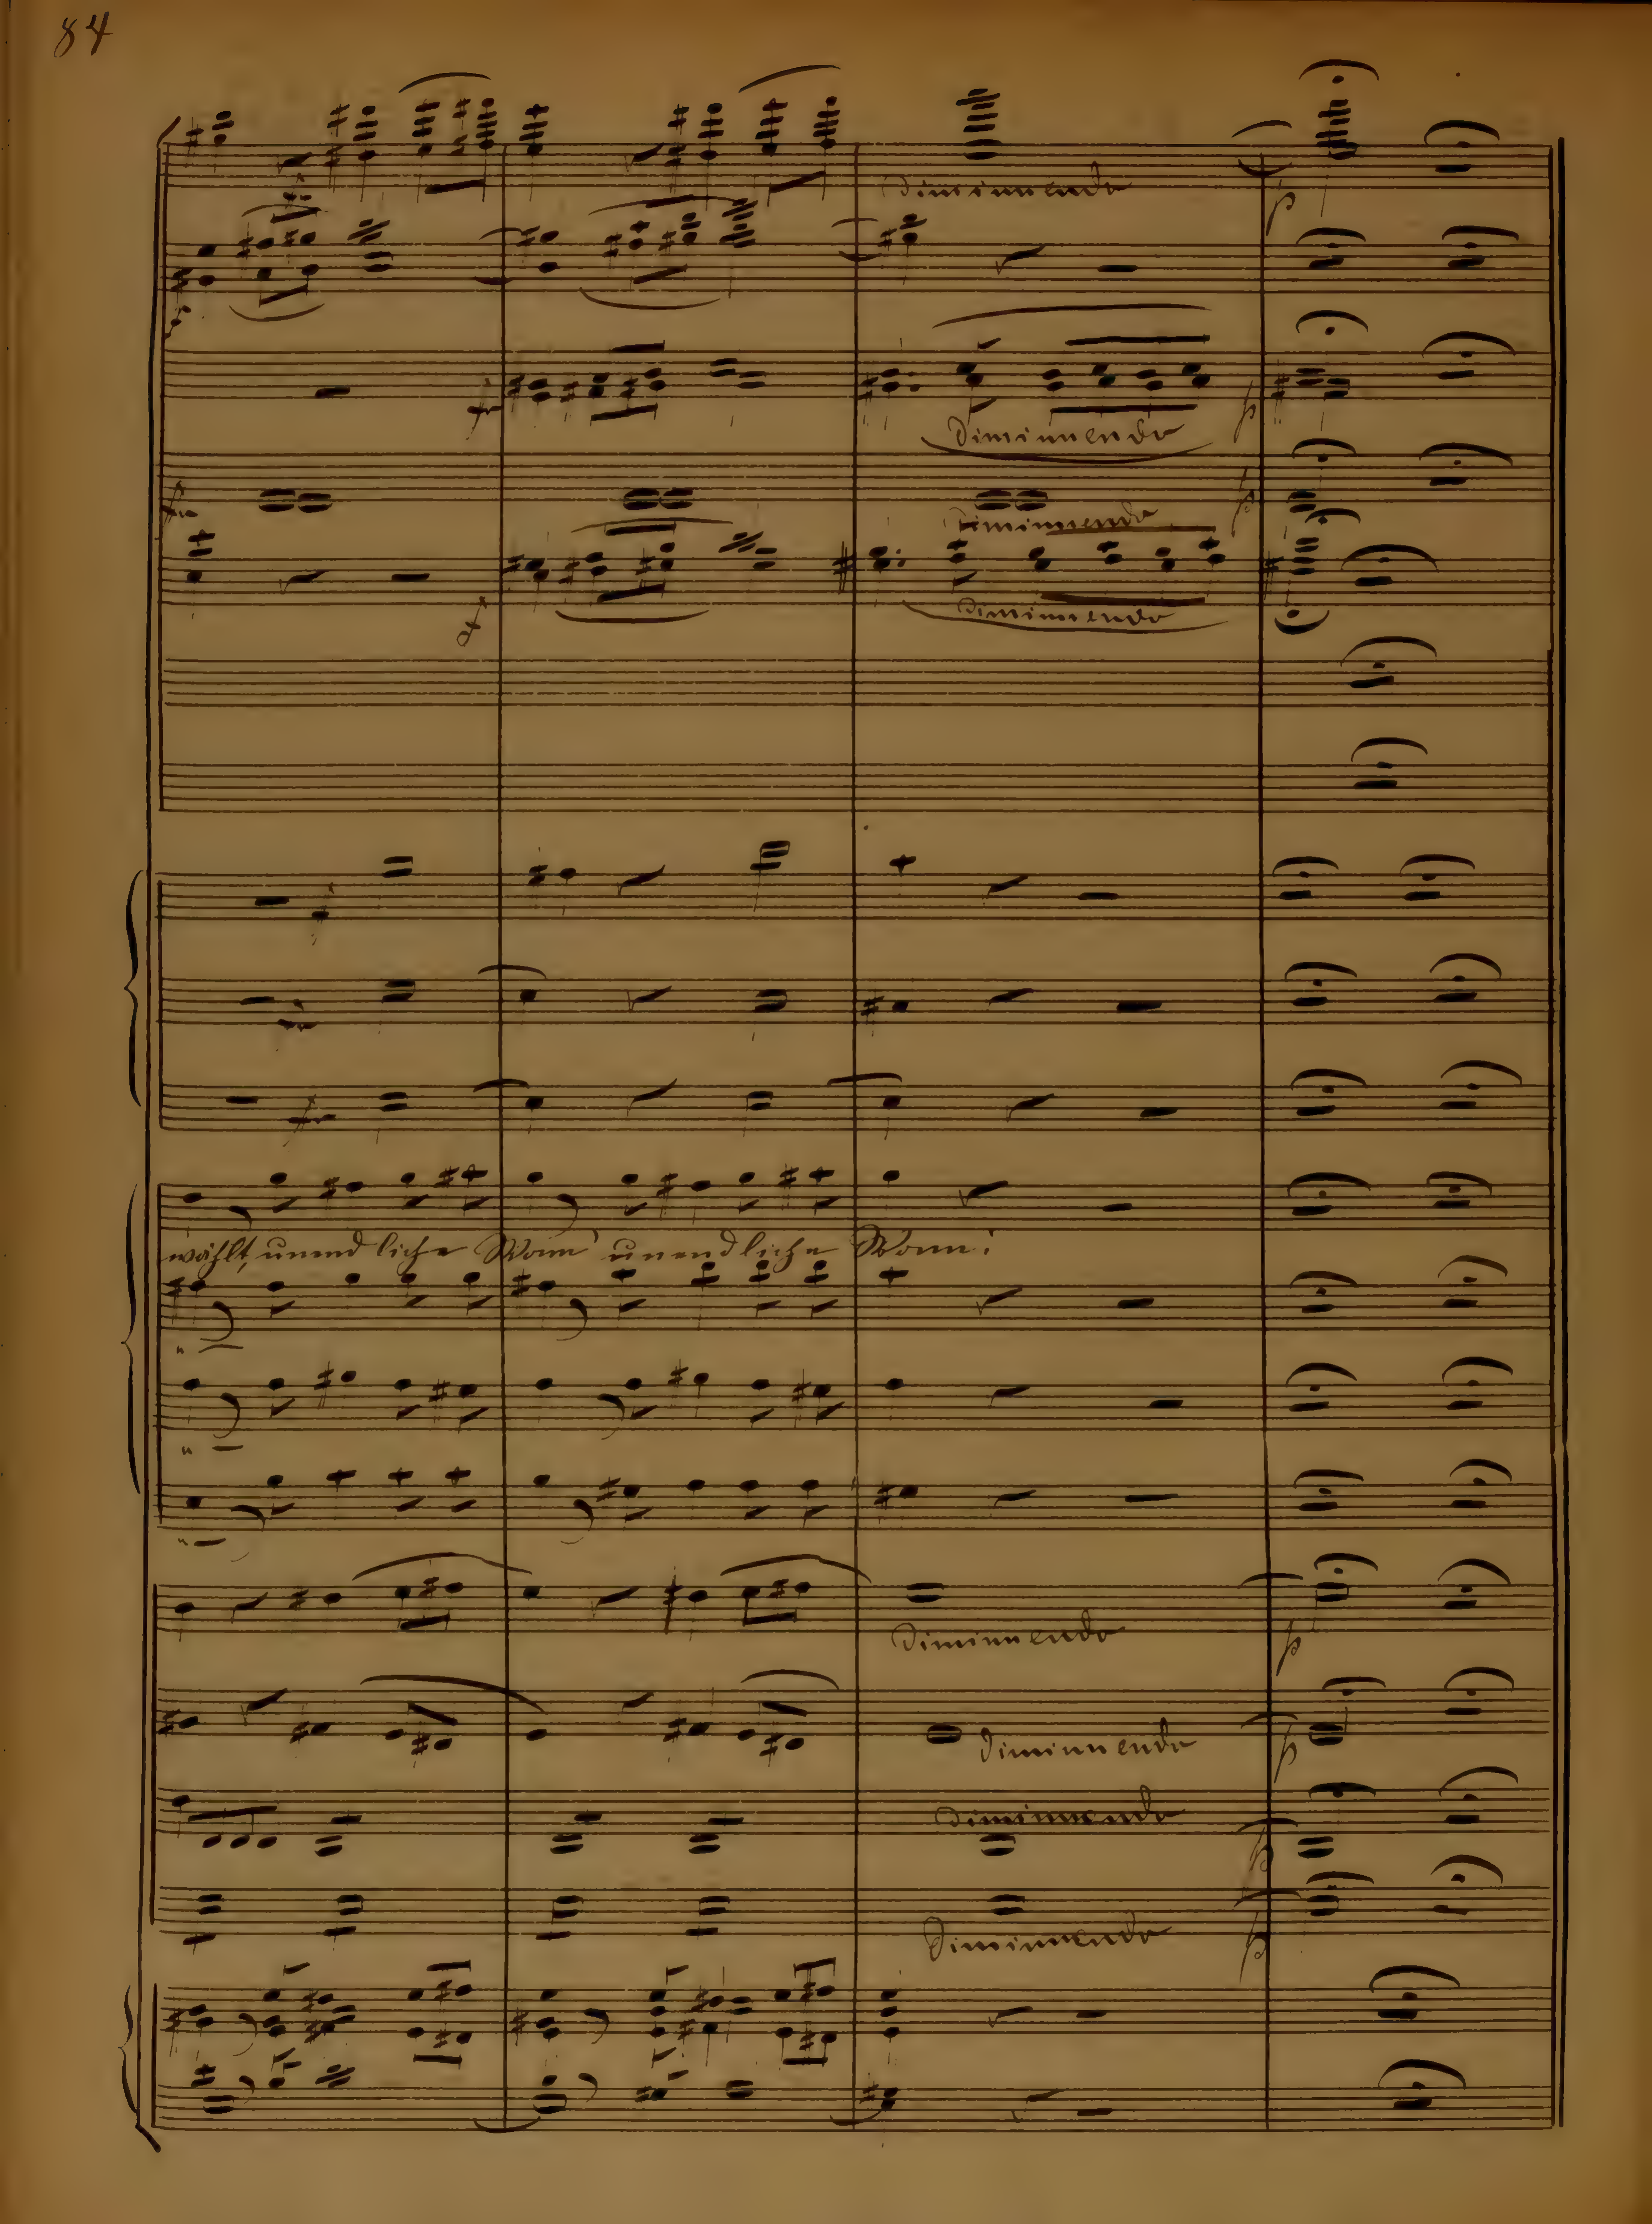 84
Diminuendo
p
fr
Diminuendo
p
fr
Diminuendo
p
Diminuendo
fr
wählt, unendliche Wonn' unendliche Wonn!
" —
" —
" —
Diminuendo
p
Diminuendo
p
Diminuendo
p
Diminuendo
p